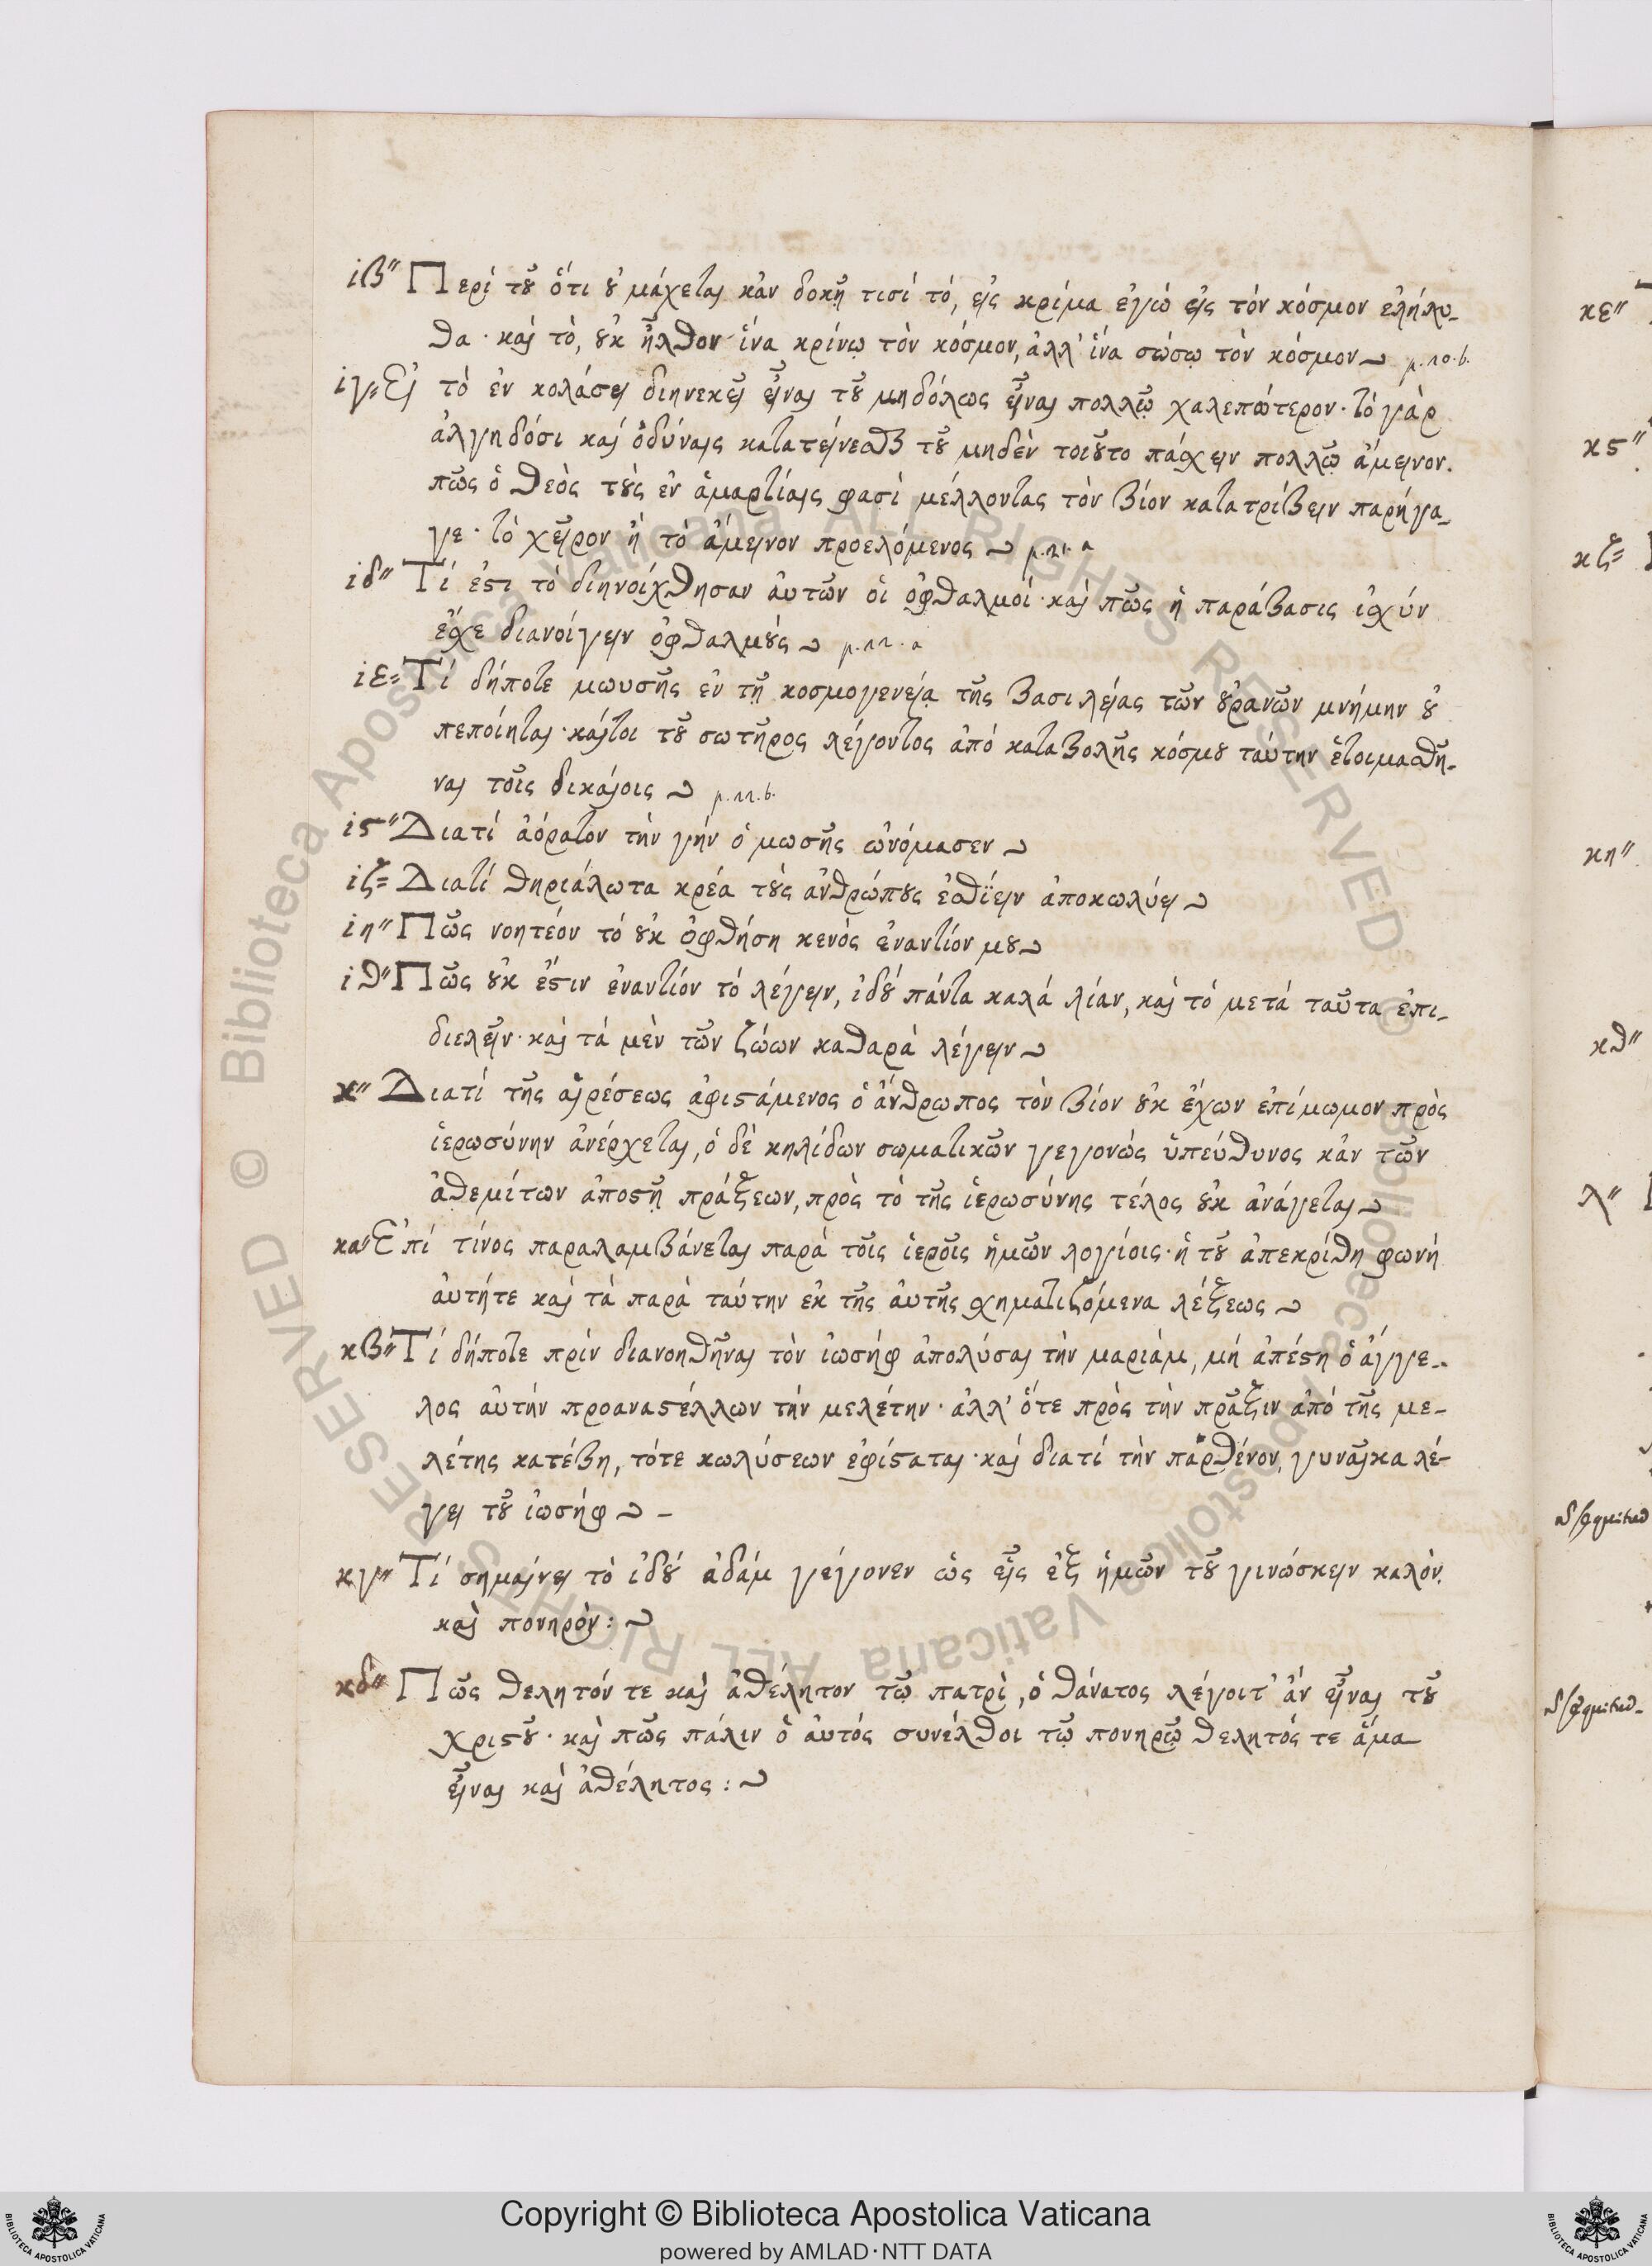 ιβ″ Περὶ τοῦ ὅτι οὐ μάχεται κἂν δοκῇ τισί τό, εἰς κρίμα ἐγὼ εἰς τὸν κόσμον ἐλήλυ-
θα · καὶ τὸ, οὐκ ἦλθον ἵνα κρίνω τὸν κόσμον, ἀλλ' ἵνα σώσω τὸν κόσμον p. 10. b.
ιγ″ Εἰ τὸ ἐν κολάσει διηνεκεῖ εἶναι τοῦ μηδόλως εἶναι πολλῷ χαλεπώτερον · τὸ γὰρ
ἀλγηδόσι καὶ ὀδύναις κατατείνεσθαι τοῦ μηδὲν τοιοῦτο πάσχειν πολλῷ ἄμεινον.
πῶς ὁ θεὸς τοὺς ἐν ἁμαρτίαις φασὶ μέλλοντας τὸν βίον κατατρίβειν παρήγα-
γε · τὸ χεῖρον ἢ τὸ ἄμεινον προελόμενος p. 11. a
ιδ″ Τί ἐστι τὸ διηνοίχθησαν αὐτῶν οἱ ὀφθαλμοί · καὶ πῶς ἡ παράβασις ἰσχύν
ἔσχε διανοίγειν ὀφθαλμούς p. 12. a
ιε″ Τί δήποτε μωυσῆς ἐν τῇ κοσμογενείᾳ τῆς βασιλείας τῶν οὐρανῶν μνήμην οὐ
πεποίηται · καίτοι τοῦ σωτῆρος λέγοντος ἀπὸ καταβολῆς κόσμου ταύτην ἑτοιμασθῆ-
ναι τοῖς δικαίοις p. 12. b.
ις″ Διατί ἀόρατον τὴν γήν ὁ μωσῆς ὠνόμασεν
ιζ″ Διατί θηριάλωτα κρέα τοὺς ἀνθρώπους ἐσθίειν ἀποκωλύει
ιη″ Πῶς νοητέον τό οὐκ ὀφθήσῃ κενὸς ἐναντίον μου
ιθ″ Πῶς οὐκ ἔστιν ἐναντίον τό λέγειν, ἰδού πάντα καλά λίαν, καὶ τό μετά ταῦτα ἐπι-
διελεῖν · καὶ τά μὲν τῶν ζώων καθαρὰ λέγειν
κ″ Διατί τῆς αἱρέσεως ἀφιστάμενος ὁ ἄνθρωπος τὸν βίον οὐκ ἔχων ἐπίμωμον πρὸς
ἱερωσύνην ἀνέρχεται, ὁ δὲ κηλίδων σωματικῶν γεγονὼς ὑπεύθυνος κἂν τῶν
ἀθεμίτων ἀποστῇ πράξεων, πρὸς τὸ τῆς ἱερωσύνης τέλος οὐκ ἀνάγεται
κα″ Ἐπί τίνος παραλαμβάνεται παρά τοῖς ἱεροῖς ἡμῶν λογίοις · ἡ τοῦ ἀπεκρίθη φωνή
αὐτήτε καὶ τὰ παρὰ ταύτην ἐκ τῆς αὐτῆς σχηματιζόμενα λέξεως
κβ″ Τί δήποτε πρίν διανοηθῆναι τὸν ἰωσήφ ἀπολύσαι τὴν μαριάμ, μή ἀπέστη ὁ ἄγγε-
λος αὐτήν προαναστέλλων τήν μελέτην · ἀλλ' ὅτε πρὸς τὴν πρᾶξιν ἀπό τῆς με-
λέτης κατέβη, τότε κωλύσεων ἐφίσταται · καὶ διατί τὴν παρθένον, γυναῖκα λέ-
γει τοῦ ἰωσήφ -
κγ″ Τί σημαίνει τὸ ἰδού ἀδάμ γέγονεν ὡς εἷς ἐξ ἡμῶν τοῦ γινώσκειν καλὸν
καὶ πονηρὸν :
κδ″ Πῶς θελητόν τε καὶ ἀθέλητον τῷ πατρὶ, ὁ θάνατος λέγοιτ' ἂν εἶναι τοῦ
χριστοῦ · καὶ πῶς πάλιν ὁ αὐτός συνέλθοι τῷ πονηρῷ θελητός τε ἅμα
εἶναι καὶ ἀθέλητος :
κε″
κς″
κζ″
κη″
κθ″
λ″
© Biblioteca Apostolica Vaticana ALL RIGHTS RESERVED
© Biblioteca Apostolica Vaticana ALL RIGHTS RESERVED
Copyright © Biblioteca Apostolica Vaticana
powered by AMLAD·NTT DATA
BIBLIOTECA APOSTOLICA VATICANA
BIBLIOTECA APOSTOLICA VATICANA